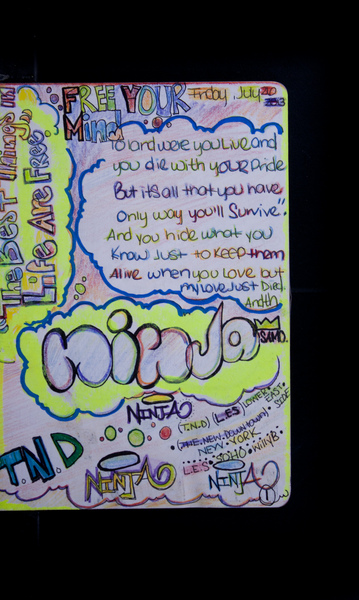 The Best Things in
Life Are Free
FREE YOUR
Mind
Friday July
To land were you Live and
you die with yOUR Pride
But it's all that you have
Only way you'll Survive"
And you hide what you
Know Just to KEEP them
Alive when you love but
my Love Just Died
And th
Ninja
SAMO.
NINJA
(T.N.D) (L.E.S) LOWER EAST SIDE
(THE.NEW.DOWNTOWN)
NEW YORK
SOHO
L.E.S
T.N.D
NINJA
NINJA
1